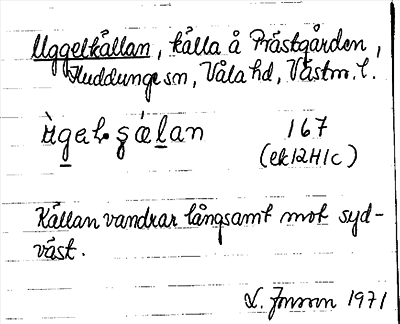 Uggelkällan, källa å Prästgården,
Huddunge sn, Våla hd, Västm. l.
ùgel·gǽlan 167
(ek12H1c)
Källan vandrar långsamt mot syd-
väst.
L. Jonson 1971